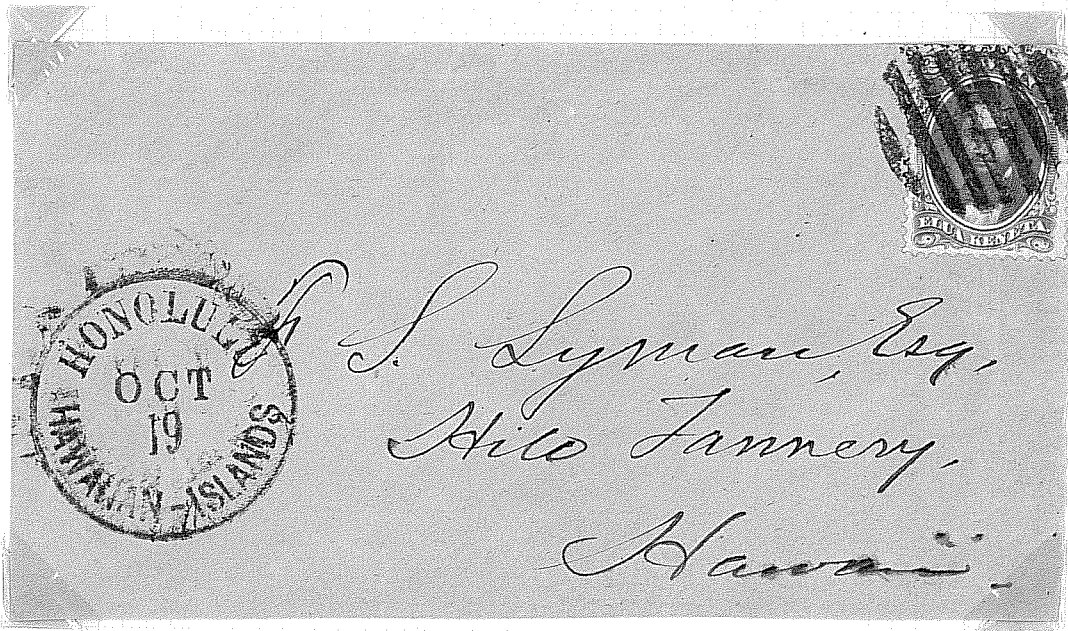 ELUA KENETA
HONOLULU
OCT
19
HAWAIIAN-ISLANDS
S. Lyman, Esq,
Hilo Tannery,
Hawaii.